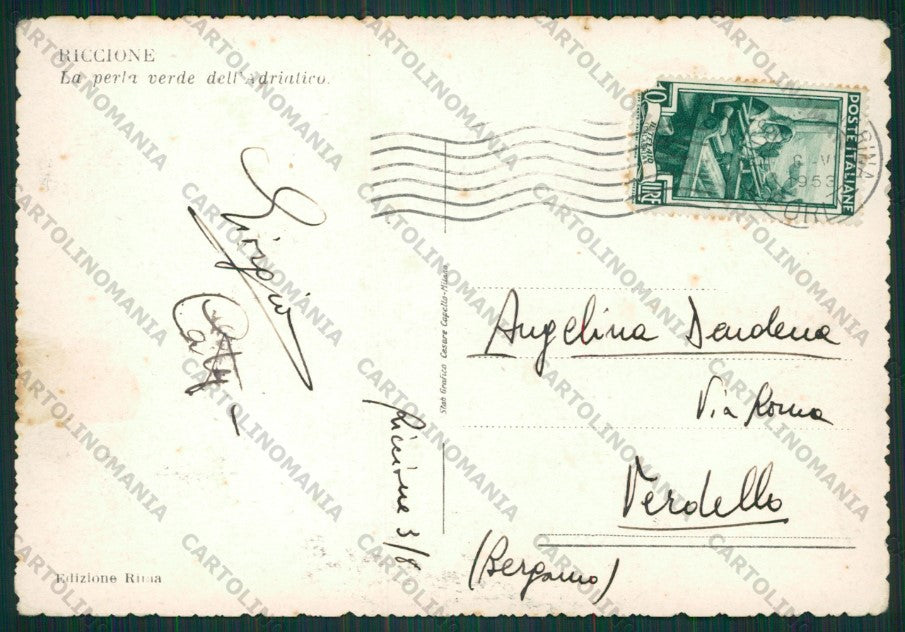 RICCIONE
La perla verde dell'Adriatico.
POSTE ITALIANE
10
LIRE
953
Giorgio
Riccione 3/8
Stab Grafico Cesare Capello-Milano
Angelina Dendena
Via Roma
Verdello
(Bergamo)
Edizione Rima
CARTOLINOMANIA